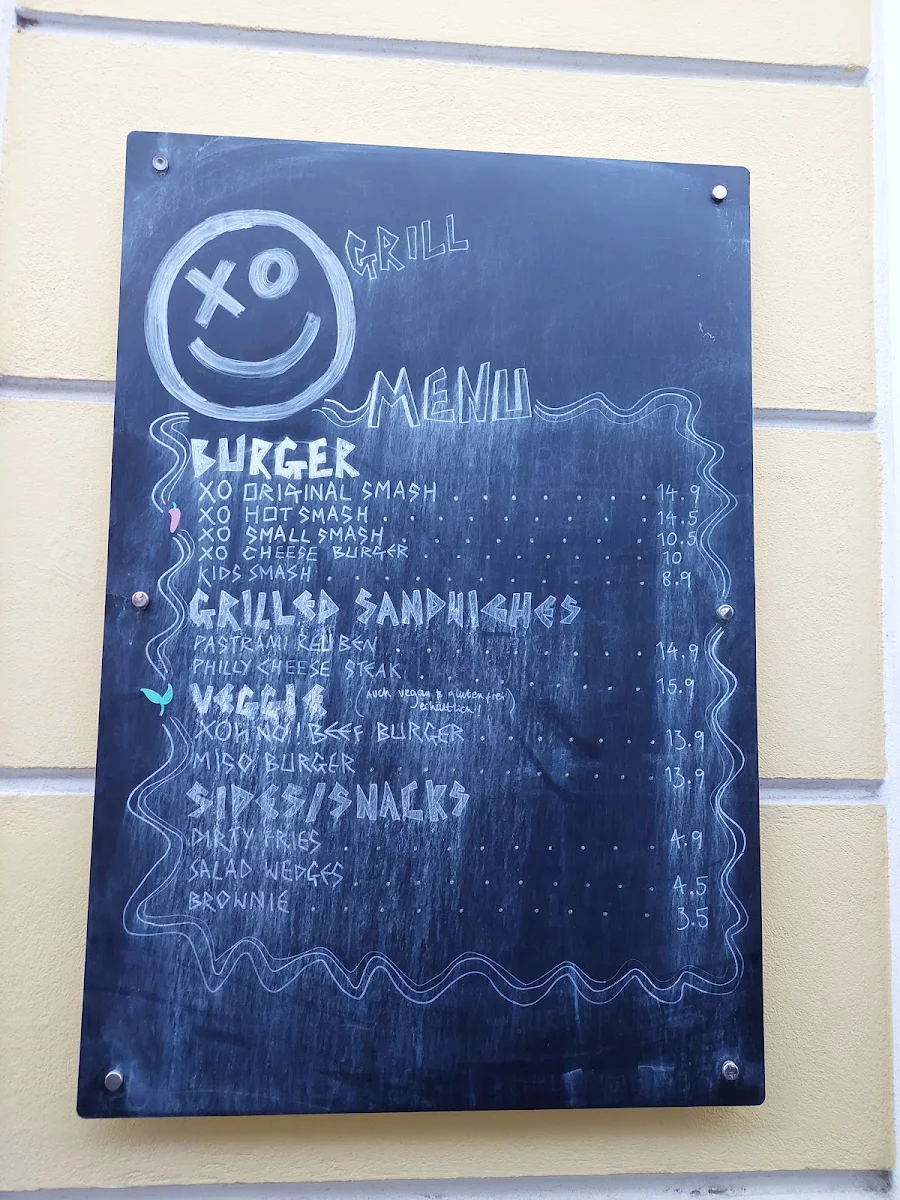 XO GRILL
MENU
BURGER
XO ORIGINAL SMASH . . . . . . . 14.9
XO HOT SMASH . . . . . . . . . 14.5
XO SMALL SMASH . . . . . . . . 10.5
XO CHEESE BURGER . . . . . . . 10
KIDS SMASH . . . . . . . . . . 8.9
GRILLED SANDWICHES
PASTRAMI REUBEN . . . . . . . . 14.9
PHILLY CHEESE STEAK . . . . . . . 15.9
VEGGIE (Auch vegan & glutenfrei
erhältlich!)
XOH NO! BEEF BURGER . . . . . . 13.9
MISO BURGER . . . . . . . . . 13.9
SIDES/SNACKS
DIRTY FRIES . . . . . . . . . . 4.9
SALAD WEDGES . . . . . . . . . 4.5
BROWNIE . . . . . . . . . . . 3.5